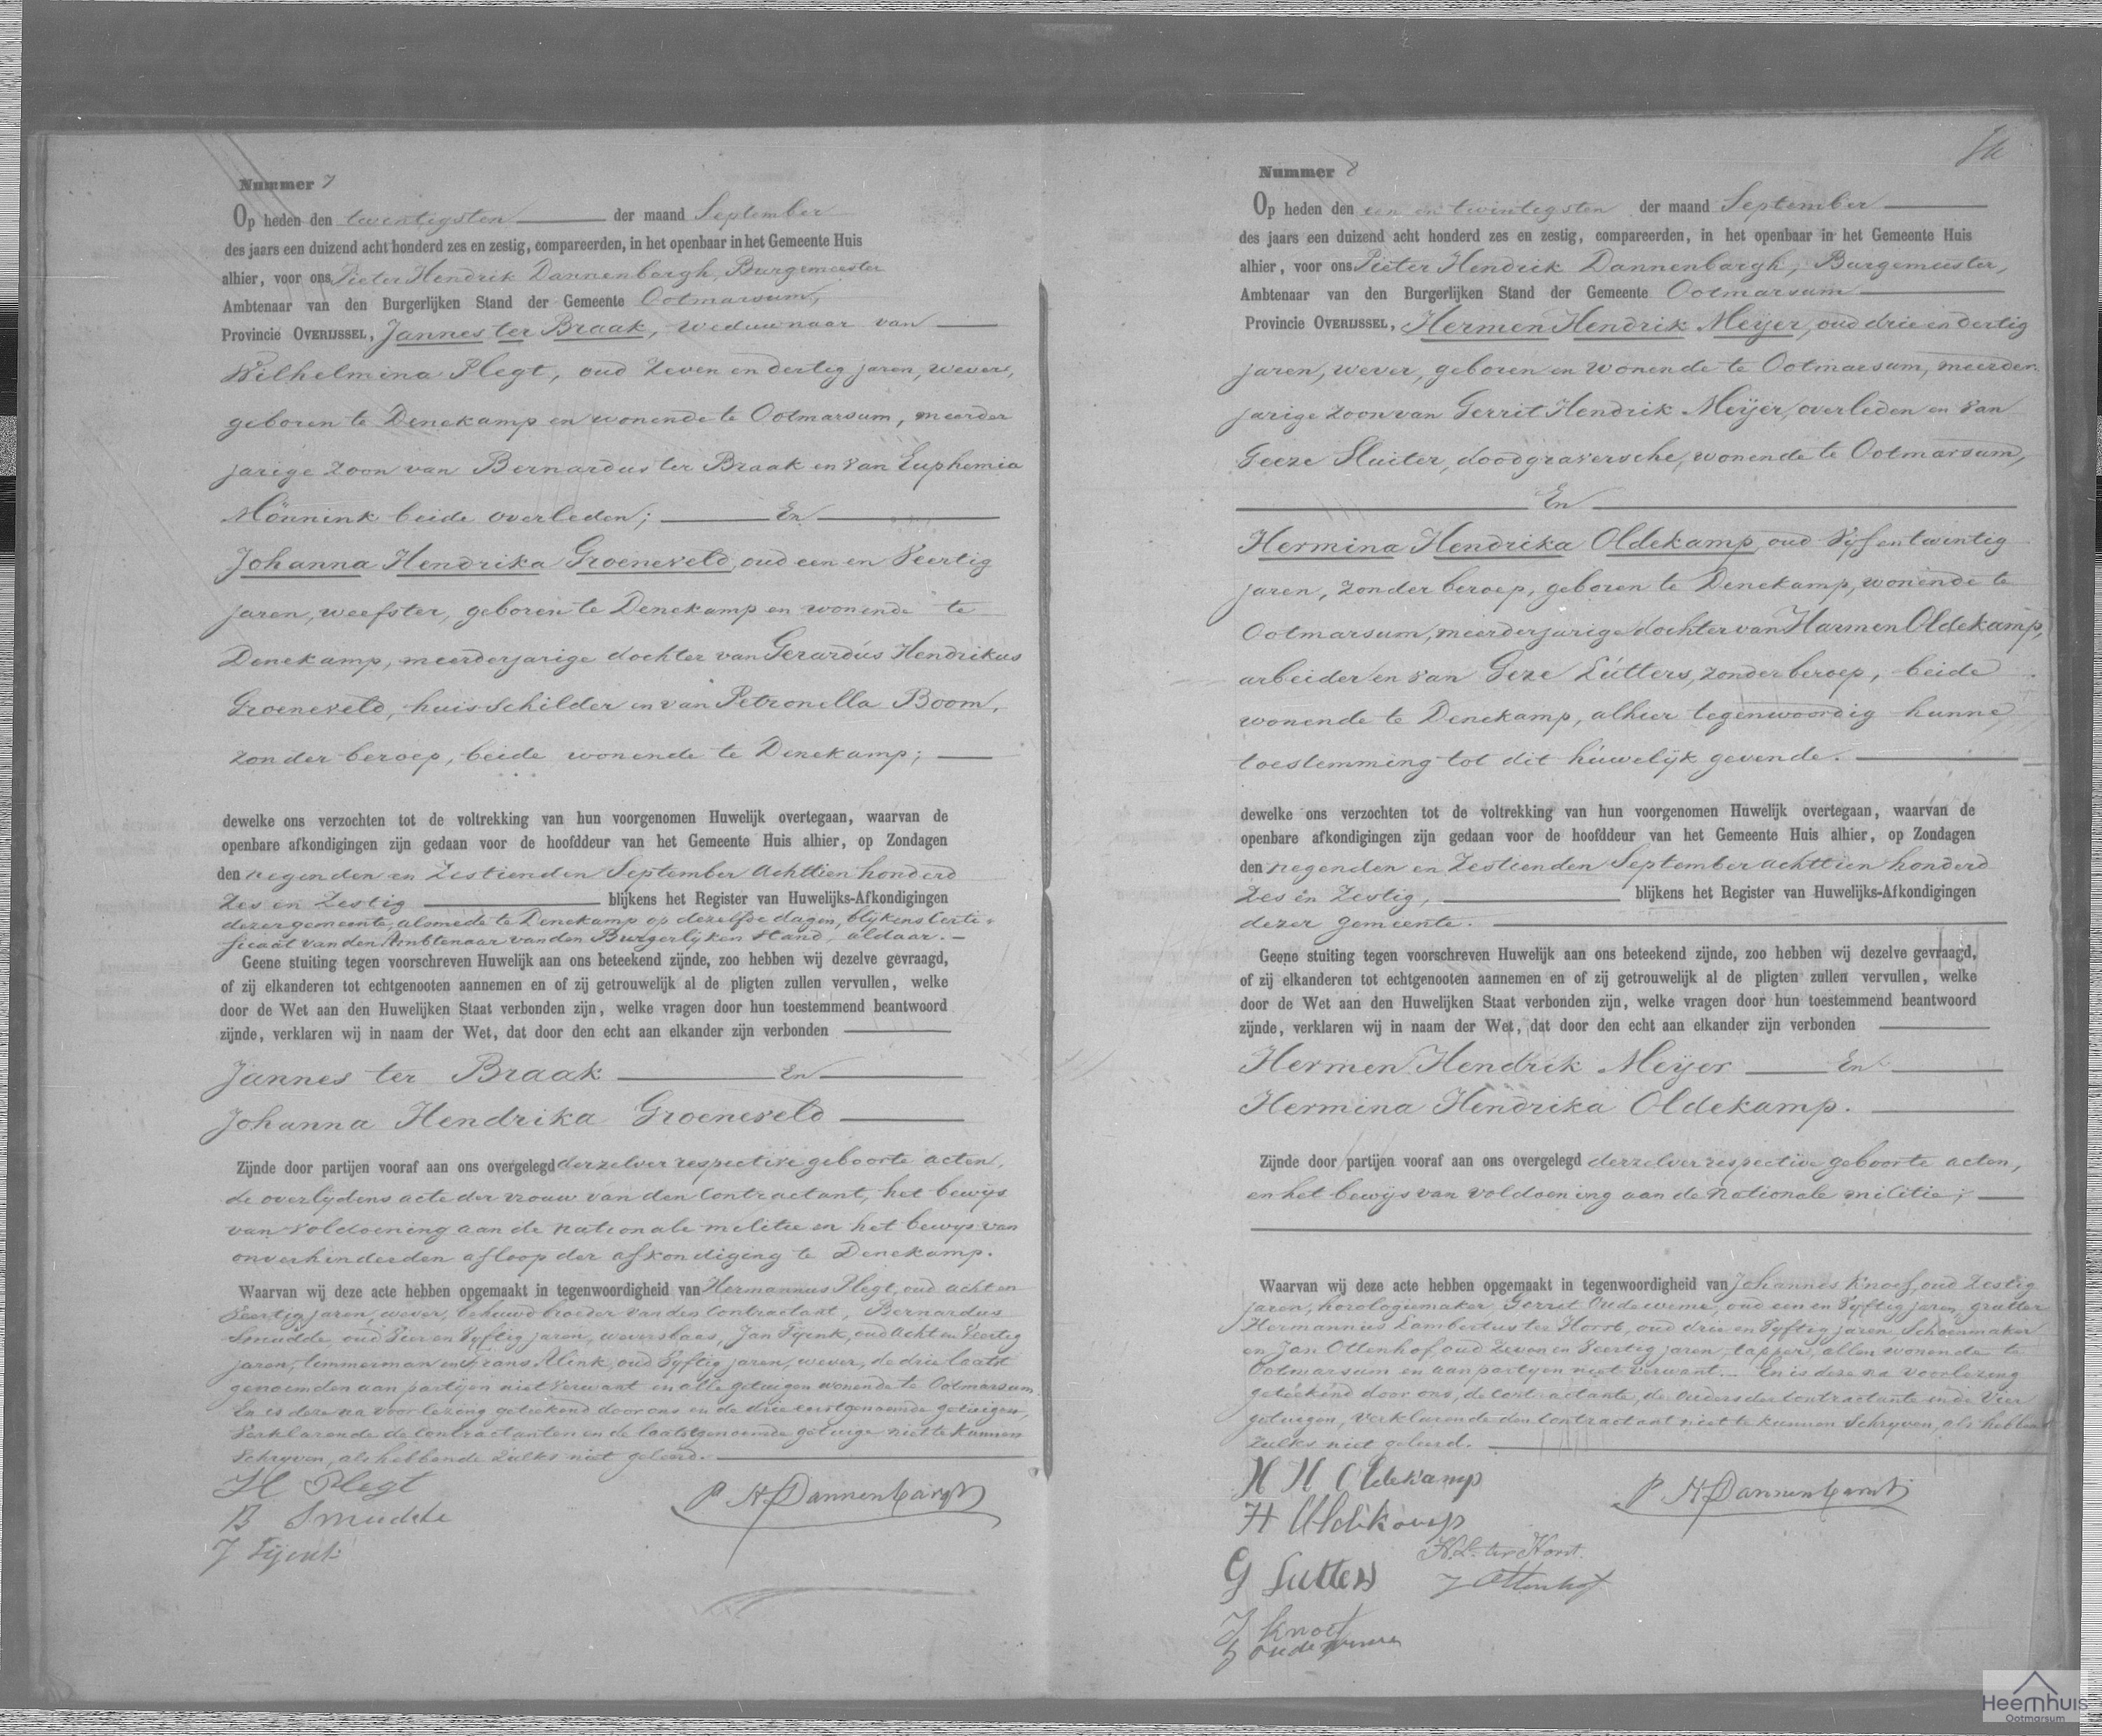 Nummer 7
Op heden den twintigsten der maand September
des jaars een duizend acht honderd zes en zestig, compareerden, in het openbaar in het Gemeente Huis
alhier, voor ons Pieter Hendrik Dannenbargh, Burgemeester
Ambtenaar van den Burgerlijken Stand der Gemeente Ootmarsum,
Provincie OVERIJSSEL, Jannes ter Braak, weduwnaar van
Wilhelmina Plegt, oud zeven en dertig jaren, wever,
geboren te Denekamp en wonende te Ootmarsum, meerder
jarige zoon van Bernardus ter Braak en van Euphemia
Mönnink beide overleden; En
Johanna Hendrika Groeneveld, oud een en veertig
jaren, weefster, geboren te Denekamp en wonende te
Denekamp, meerderjarige dochter van Gerardús Hendrikus
Groeneveld, huisschilder en van Petronella Boom,
zonder beroep, beide wonende te Denekamp;
dewelke ons verzochten tot de voltrekking van hun voorgenomen Huwelijk overtegaan, waarvan de
openbare afkondigingen zijn gedaan voor de hoofddeur van het Gemeente Huis alhier, op Zondagen
den negenden en zestienden September achttien honderd
zes en zestig blijkens het Register van Huwelijks-Afkondigingen
dezer gemeente, alsmede te Denekamp op dezelfde dagen, blijkens Certi-
ficaat van den Ambtenaar van den Burgerlijken Stand, aldaar.
Geene stuiting tegen voorschreven Huwelijk aan ons beteekend zijnde, zoo hebben wij dezelve gevraagd,
of zij elkanderen tot echtgenooten aannemen en of zij getrouwelijk al de pligten zullen vervullen, welke
door de Wet aan den Huwelijken Staat verbonden zijn, welke vragen door hun toestemmend beantwoord
zijnde, verklaren wij in naam der Wet, dat door den echt aan elkander zijn verbonden
Jannes ter Braak En
Johanna Hendrika Groeneveld
Zijnde door partijen vooraf aan ons overgelegd derzelver respective geboorte acten,
de overlijdens acte der vrouw van den Contractant, het bewijs
van voldoening aan de nationale militie en het bewijs van
onverhinderden afloop der afkondiging te Denekamp.
Waarvan wij deze acte hebben opgemaakt in tegenwoordigheid van Hermannus Plegt, oud acht en
veertig jaren, wever, behuwd broeder van den Contractant, Bernardus
Smudde, oud vier en vijftig jaren, weversbaas, Jan Tijink, oud acht en veertig
jaren, timmerman en Frans Alink, oud vijftig jaren, wever, de drie laatst
genoemden aan partijen niet verwant en alle getuigen wonende te Ootmarsum.
En is deze na voorlezing geteekend door ons en de drie eerstgenoemde getuigen,
verklarende de Contractanten en de laatstgenoemde getuige niet te kunnen
schrijven, als hebbende zulks niet geleerd.
H Plegt
P H Dannenbargh
B Smudde
J Tijink
Nummer 8
Op heden den een en twintigsten der maand September
des jaars een duizend acht honderd zes en zestig, compareerden, in het openbaar in het Gemeente Huis
alhier, voor ons Pieter Hendrik Dannenbargh, Burgemeester,
Ambtenaar van den Burgerlijken Stand der Gemeente Ootmarsum
Provincie OVERIJSSEL, Hermen Hendrik Meijer, oud drie en dertig
jaren, wever, geboren en wonende te Ootmarsum, meerder
jarige zoon van Gerrit Hendrik Meijer, overleden en van
Geeze Sluiter, doodgraversche, wonende te Ootmarsum,
En
Hermina Hendrika Oldekamp, oud vijf en twintig
jaren, zonder beroep, geboren te Denekamp, wonende te
Ootmarsum, meerderjarige dochter van Harmen Oldekamp,
arbeider en van Geze Lútters, zonder beroep, beide
wonende te Denekamp, alhier tegenwoordig hunne
toestemming tot dit húwelijk gevende.
dewelke ons verzochten tot de voltrekking van hun voorgenomen Huwelijk overtegaan, waarvan de
openbare afkondigingen zijn gedaan voor de hoofddeur van het Gemeente Huis alhier, op Zondagen
den negenden en zestienden September achttien honderd
zes en zestig, blijkens het Register van Huwelijks-Afkondigingen
dezer gemeente.
Geene stuiting tegen voorschreven Huwelijk aan ons beteekend zijnde, zoo hebben wij dezelve gevraagd,
of zij elkanderen tot echtgenooten aannemen en of zij getrouwelijk al de pligten zullen vervullen, welke
door de Wet aan den Huwelijken Staat verbonden zijn, welke vragen door hun toestemmend beantwoord
zijnde, verklaren wij in naam der Wet, dat door den echt aan elkander zijn verbonden
Hermen Hendrik Meijer En
Hermina Hendrika Oldekamp.
Zijnde door partijen vooraf aan ons overgelegd derzelver respective geboorte acten,
en het bewijs van voldoening aan de nationale militie;
Waarvan wij deze acte hebben opgemaakt in tegenwoordigheid van Johannes Knoef, oud zestig
jaren, horologiemaker, Gerrit Oude weme, oud een en vijftig jaren, grutter
Hermannus Lambertus ter Horst, oud drie en vijftig jaren, schoenmaker
en Jan Ottenhof, oud zeven en veertig jaren, tapper, allen wonende te
Ootmarsum en aan partijen niet verwant. En is deze na voorlezing
geteekend door ons, de Contractante, de ouders der Contractante en de vier
getuigen, verklarende den Contractant niet te kunnen schrijven, als hebbende
zulks niet geleerd.
H H Oldekamp
P H Dannenbargh
H Oldekamp
H. L. ter Horst
G Lutters
J Ottenhof
J Knoef
G oude weme
Heemhuis
Ootmarsum